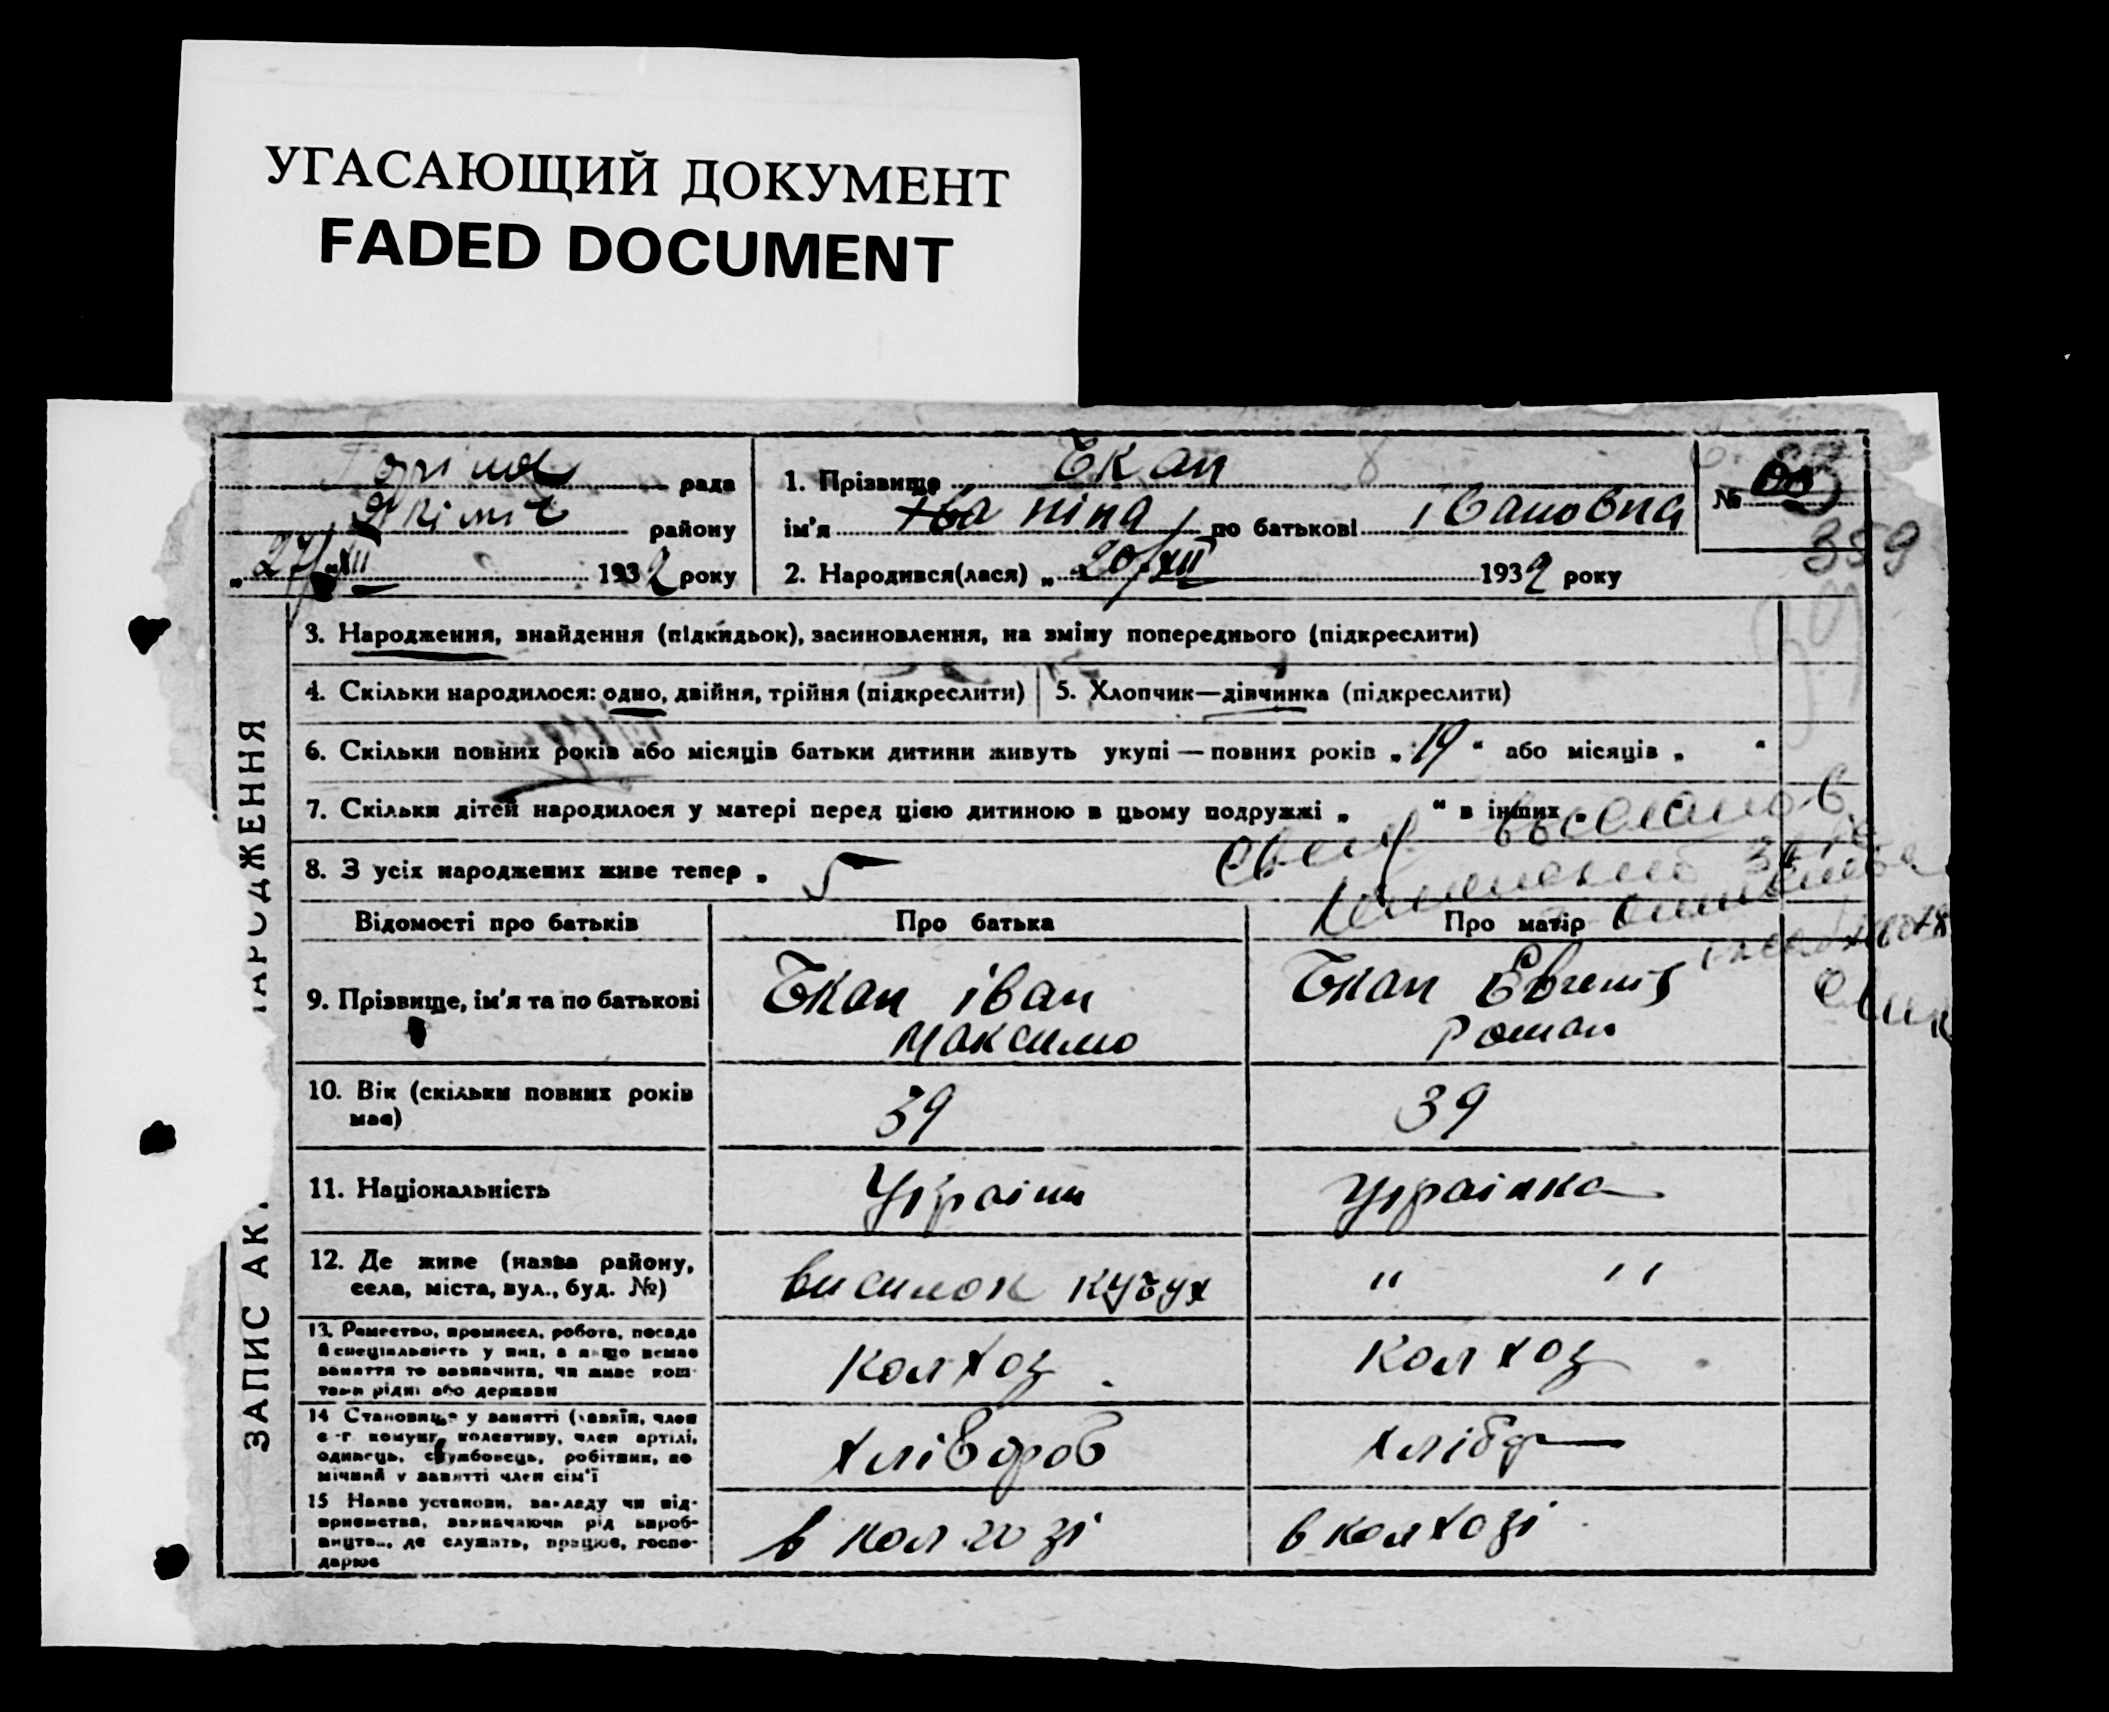 УГАСАЮЩИЙ ДОКУМЕНТ
FADED DOCUMENT
рада
району
„ 27/XII 1932 року
1. Прізвище Єкан
ім'я ніна по батькові івановна
№
359
2. Народився(лася) „ 20/XII 1932 року
3. Народження, знайдення (підкидьок), засиновлення, на зміну попереднього (підкреслити)
4. Скільки народилося: одно, двійня, трійня (підкреслити)
5. Хлопчик—дівчинка (підкреслити)
6. Скільки повних років або місяців батьки дитини живуть укупі — повних років „ 19 “ або місяців „ “
7. Скільки дітей народилося у матері перед цією дитиною в цьому подружжі „ “ в інших „
8. З усіх народжених живе тепер „ 5
Відомості про батьків
Про батька
Про матір
9. Прізвище, ім'я та по батькові
Єкан іван
максимо
Єкан Евгенія
Роман
10. Вік (скільки повних років
має)
39
39
11. Національність
Україн
Українка
12. Де живе (назва району,
села, міста, вул., буд. №)
висилок
" "
13. Ремество, промисел, робота, посада
й спеціальність у них, а якщо немає
заняття то зазначити, чи живе кош-
тами рідні або держави
колхоз
колхоз
14 Становище у занятті (хазяїн, член
с.-г. комуни, колективу, член артілі,
одинець, службовець, робітник, по
мічний у занятті член сім'ї
хлібороб
хлібор
15 Назва установи, закладу чи під-
приємства, зазначаючи рід вироб-
ництва, де служить, працює, госпо-
дарює
в колгозі
в колхозі
ЗАПИС АК
НАРОДЖЕННЯ